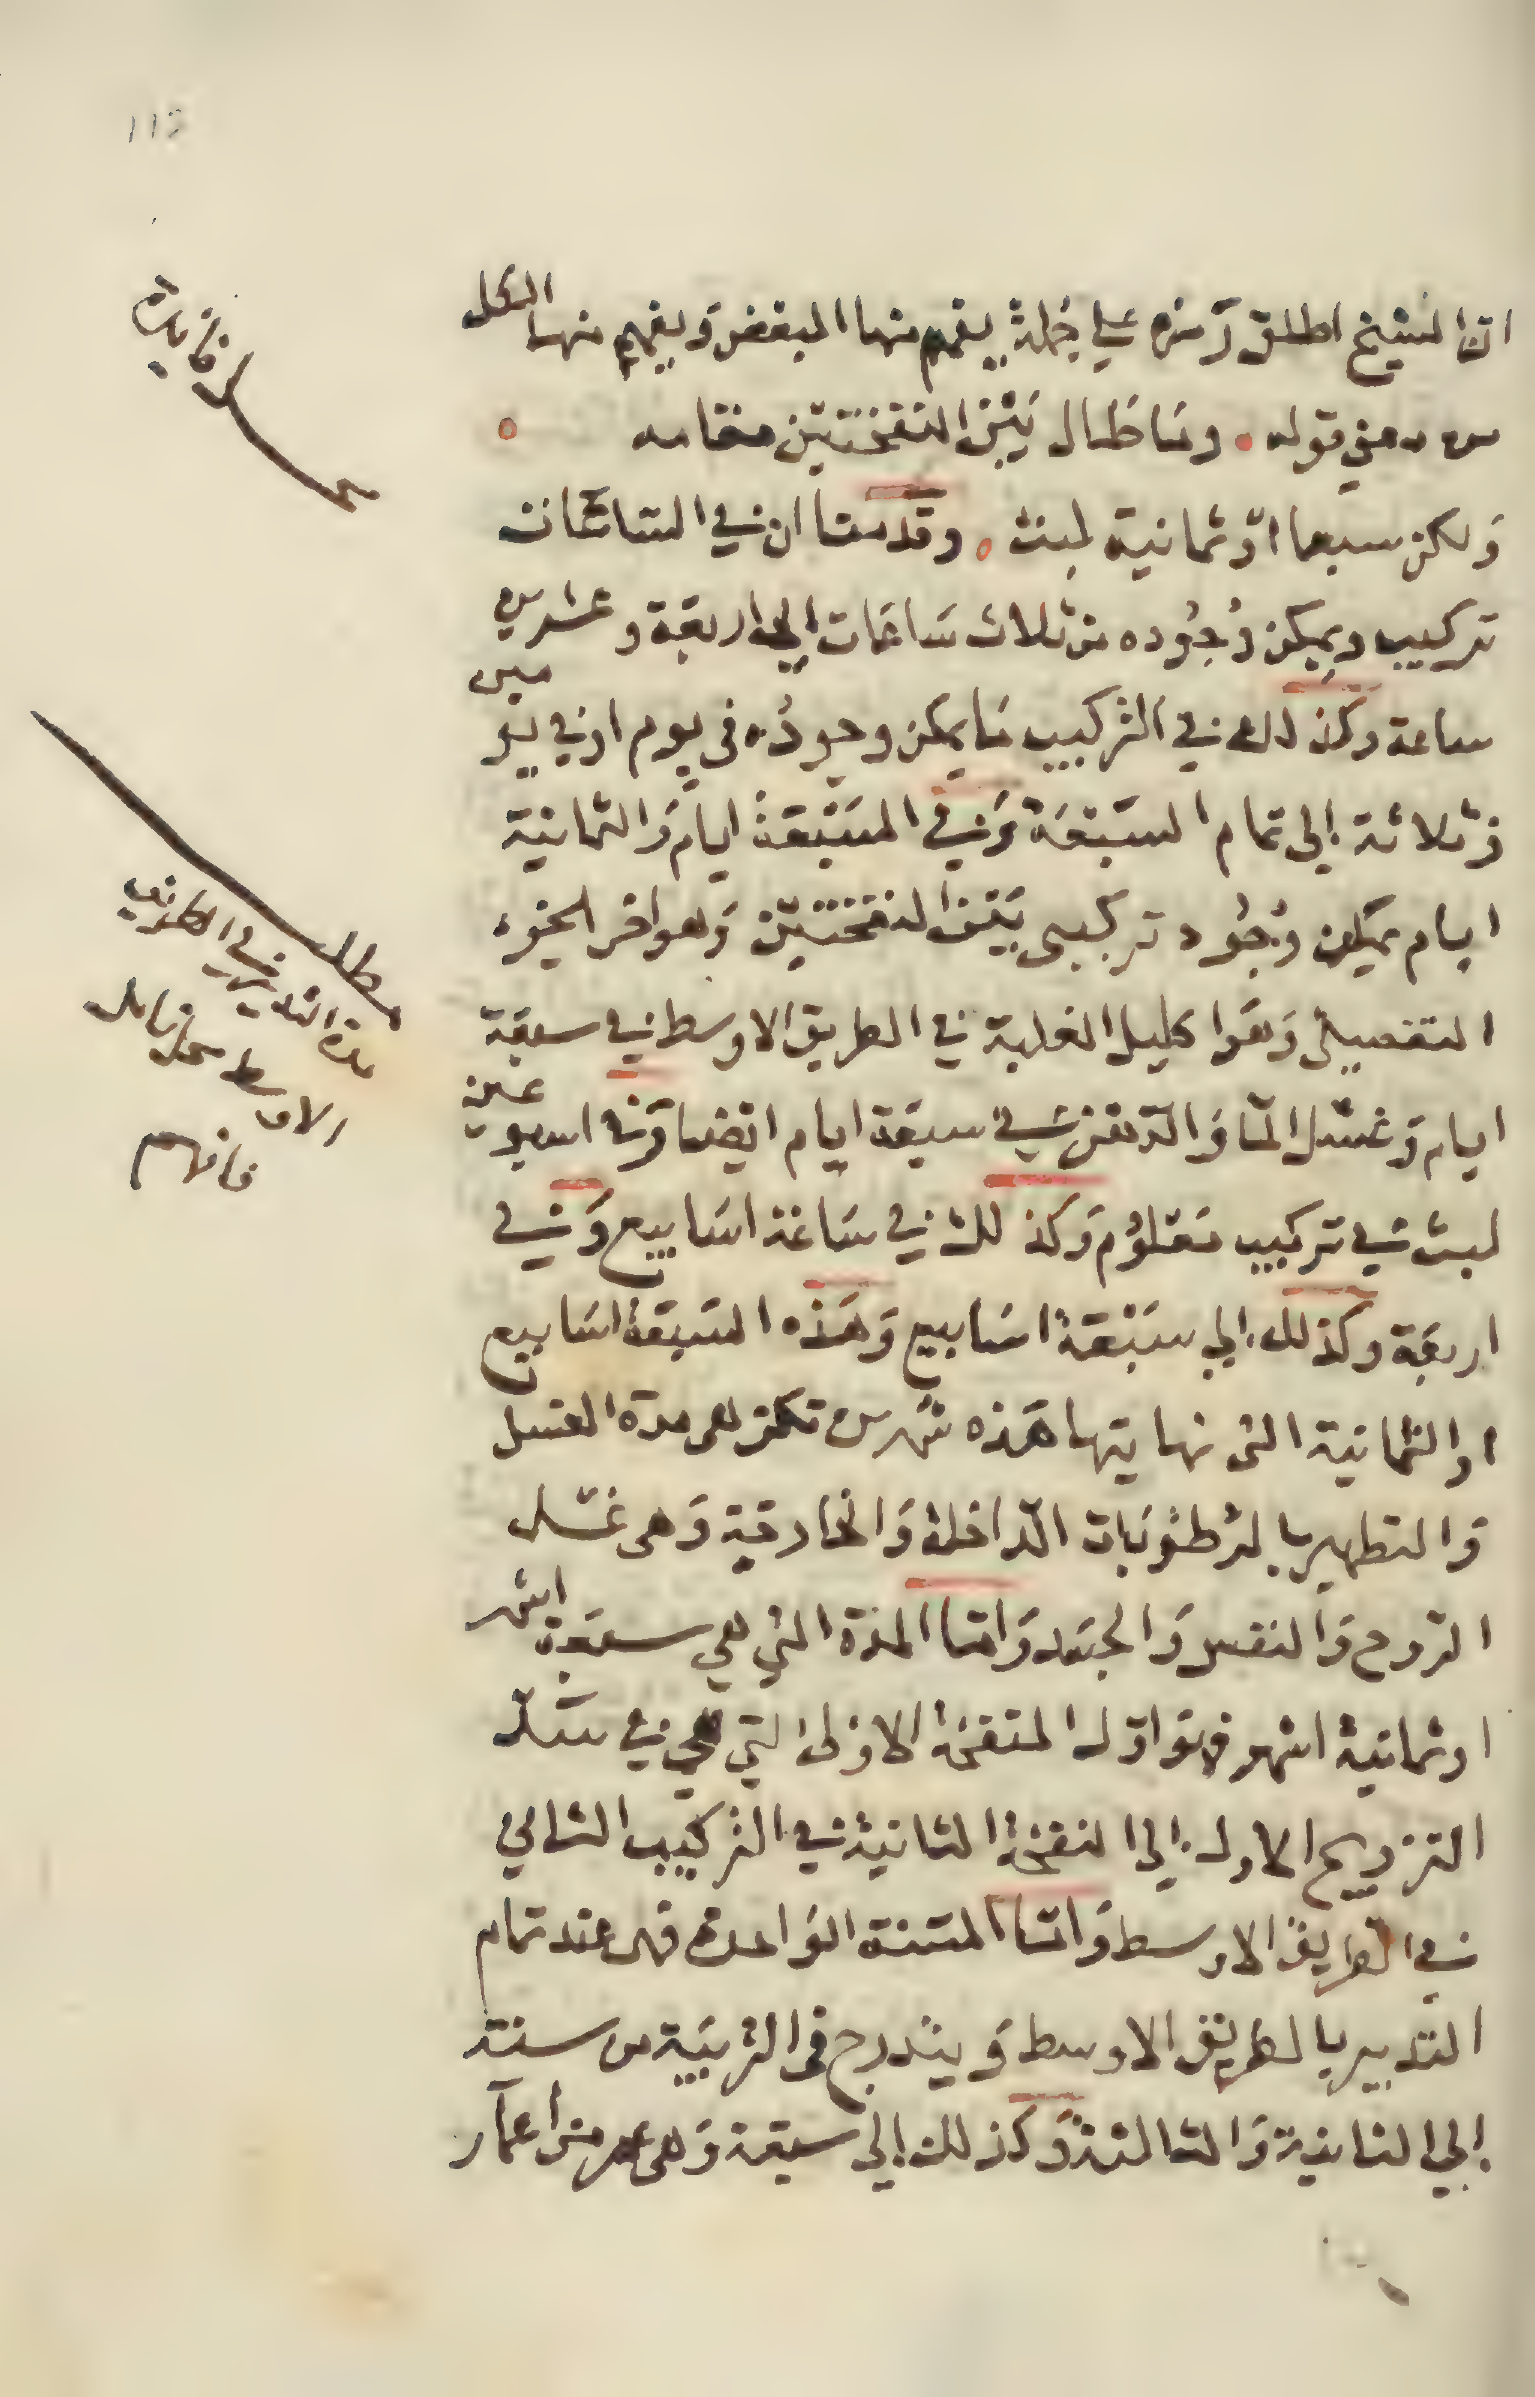 ان الشيخ اطلق رمزه علي جملة يفهم منها البعض ويفهم منها الكل
من معني قوله . وما طال بين النفختين مقامه
ولكن سبعا او ثمانية لبث . وقدمنا ان في الساعات
تركيب ويمكن وجوده من ثلاث ساعات الي اربعة وعشرين
ساعة وكذلك في التركيب ما يمكن وجوده في يوم او في يومين
وثلاثة الي تمام السبعة وفي السبعة ايام والثمانية
ايام يمكن وجود تركيب بين النفختين وهو اخر الجزء
التفصيلي وهو اكليل الغلبة في الطريق الاوسط في سبعة
ايام وغسل الماء والدهن في سبعة ايام ايضا وفي اسبوعين
لبث في تركيب معلوم وكذلك في ساعة اسابيع وفي
اربعة وكذلك الي سبعة اسابيع وهذه السبعة اسابيع
او الثمانية التي نهايتها هذه شهرين تكن هي مدة الغسل
والتطهير بالرطوبات الداخلة والخارجية وهي غسل
الروح والنفس والجسد واما المدة التي هي سبعة اشهر
او ثمانية اشهر فهو اول النفخة الاولي التي هي في
التزويج الاول الي النفخة الثانية في التركيب الثاني
في الطريق الاوسط واما السنة الواحدة فهي عند تمام
التدبير بالطريق الاوسط ويندرج في التربية من سنة
الي الثانية والثالثة وكذلك الي سبعة وهي عمر من اعمار
فايدة
مطلب
مدة التدبير في الطريق
الاوسط
فافهم